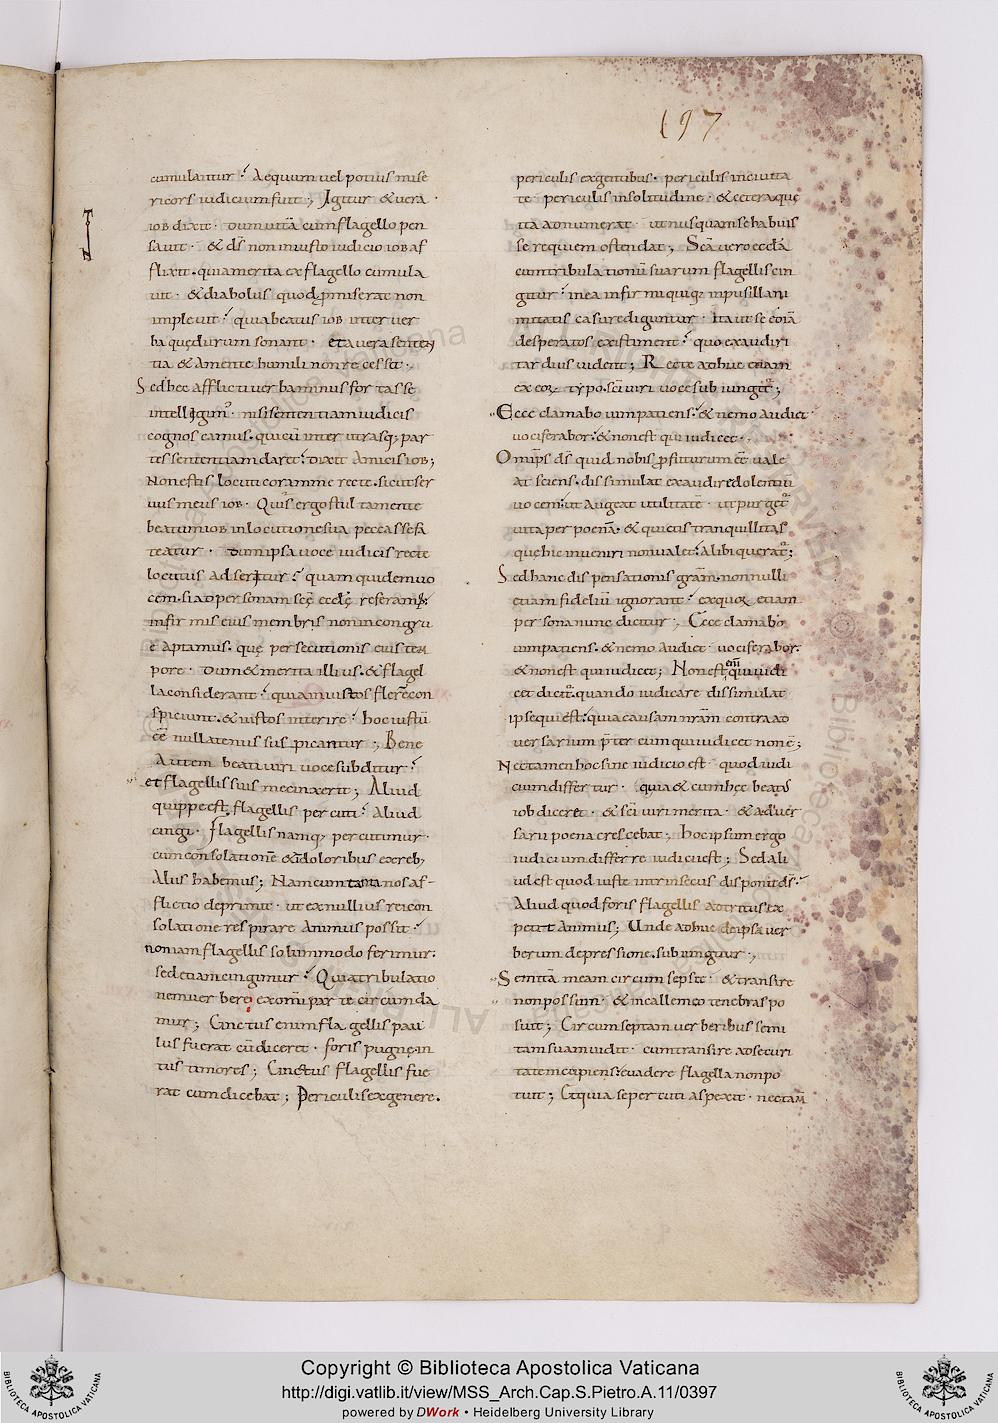 197
cumulantur; Aequum uel potius mise
ricors iudicium fuit; Igitur & uera
iob dixit. dum uitã cum flagello pen
sauit. & ds̃ non iniusto iudicio iob af
flixit. quia merita ex flagello cumula
uit. & diabolus quod ꝓmiserat non
impleuit; quia beatus iob inter uer
ba quę durum sonant. et a uera senten
tia & a mente humili non recessit;
Sed hęc afflicti uerba minus fortasse
intellegunt̃. nisi sententiam iudicis
cognoscamus. qui cũ inter utrasq; par
tes sententiam daret; dixit amicis iob;
Non estis locuti coram me recte. sicut ser
uus meus iob. Quis ergo stul ta mente
beatum iob in locutione sua peccasse fa
teatur. dum ipsa uoce iudicis recte
locutus adseritur; quam quidem uo
cem. si ad personam scẽ ecclę referam;
infirmis eius membris non incongru
e aptamus. quę persecutionis eius tem
pore. dum & merita illius. & flagel
la considerant; quia iniustos florere con
spiciunt. & iustos interire; hoc iustũ
eẽ nullatenus suspicantur; Bene
autem beati uiri uoce subditur;
et flagellis suis me cinxerit; Aliud
quippe est. flagellis percuti; Aliud
cingi. Flagellis namq; percutimur.
cum consolationẽ & in doloribus ex reb;
alus habemus; Nam cum tanta nos af-
flictio deprimit. ut ex nullius rei con
solatione respirare animus possit;
non iam flagellis solummodo ferimur.
sed etiam cingimur; Quia tribulatio
num uerbere ex omni parte circumda
mur; Cinctus enim flagellis pau
lus fuerat cũ diceret. foris pugnę. in
tus timores; Cinctus flagellis fue
rat cum dicebat; Periculis ex genere.
periculis ex gentibus. periculis in ciuita
te. periculis in solitudine. & cetera quę
ita adnumerat. ut nusquam se habuis
se requiem ostendat; Scã uero ecclã
cum tribulationũ suarum flagellis cin
gitur; in ea infirmi quiq; in pusillani
mitatis casu rediguntur. Ita ut se coiã
desperatos existiment; quo exaudiri
tardius uident; Recte adhuc etiam
ex eoꝝ typo. sci uiri uoce subiungit;
Ecce clamabo uim patiens. & nemo audiet.
uociferabor. & non est qui iudicet;
Omips ds̃ quid nobis ꝓfuturum eẽ uale
at sciens. dissimulat exaudire dolentiũ
uocem; ut augeat utilitatẽ. ut purget
uita per poenã. & quietis tranquillitas
quę hic inueniri non ualet; alibi querat;
Sed hanc dispensationis gratiã. non nulli
etiam fidelium ignorant; ex quoꝝ etiam
persona nunc dicitur; Ecce clamabo
uim patiens. & nemo audiet. uociferabor.
& non est qui iudicet; Non est eni qui iudi
cet dicit. quando iudicare dissimulat
ipse qui est; quia causam nrãm contra ad
uersarium p̃ter eum qui iudicet non ẽ;
Nec tamen hoc sine iudicio est. quod iudi
cium differtur. quia & cum hęc beatus
iob diceret. & sci uiri merita. & aduer
sarii poena crescebat; hoc ipsum ergo
iudicium differre iudicii est; Sed ali
ud est quod iuste intrinsecus disponit ds̃;
Aliud quod foris flagellis adtritus ex
petit animus; Unde adhuc de ipsa uer
berum depressione. subiungitur;
Semitã meam circumsepsit. & transire
non possum. & in calle meo tenebras po
suit; Circumseptam uerberibus semi
tam suam uidit. cum transire ad securi
tatem cupiens; euadere flagella non po
tuit; Et quia se percuti aspexit. nec tam̃
Copyright © Biblioteca Apostolica Vaticana
http://digi.vatlib.it/view/MSS_Arch.Cap.S.Pietro.A.11/0397
powered by DWork • Heidelberg University Library
BIBLIOTECA APOSTOLICA VATICANA
BIBLIOTECA APOSTOLICA VATICANA